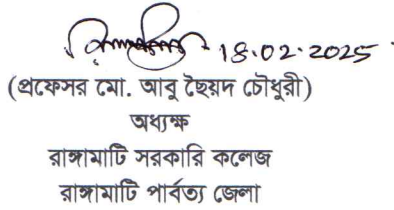 18.02.2025
(প্রফেসর মো. আবু ছৈয়দ চৌধুরী)
অধ্যক্ষ
রাঙ্গামাটি সরকারি কলেজ
রাঙ্গামাটি পার্বত্য জেলা